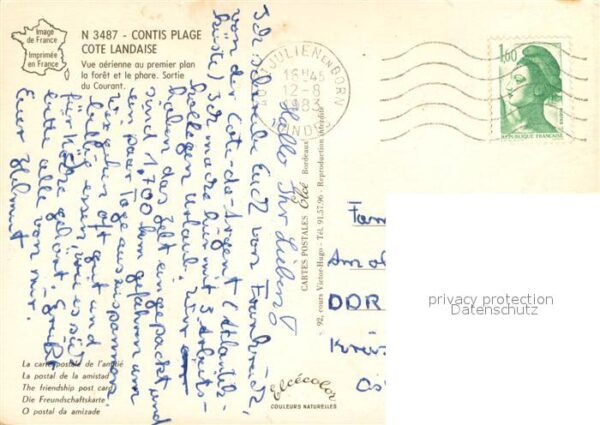 Image
de France
Imprimée
en France
N 3487 - CONTIS PLAGE
COTE LANDAISE
Vue aérienne au premier plan
la forêt et le phare. Sortie
du Courant.
JULIEN EN BORN
16H45
12-8
1983
1,60
RÉPUBLIQUE FRANÇAISE
Hallo Ihr Lieben!
Ich sende Euch von Frankreich,
von der Cote-de-Argent (Atlantik-
küste) Ich mache hier mit 3 Arbeits-
kollegen Urlaub. Wir
haben das Zelt eingepackt und
sind 1.700 km gefahren um
ein paar Tage auszuspannen.
Wir gehen oft gut und
essen, wie es sich
für gehört. Grüße
bitte alle von mir.
Euer Helmut
CARTES POSTALES Elcé Bordeaux
92, cours Victor-Hugo - Tél. 91.57.96 - Reproduction interdite
Fam
Am
DDR
Kreis
Os
privacy protection
Datenschutz
La carte postale de l'amitié
La postal de la amistad
The friendship post card
Die Freundschaftskarte
O postal da amizade
Elcécolor
COULEURS NATURELLES